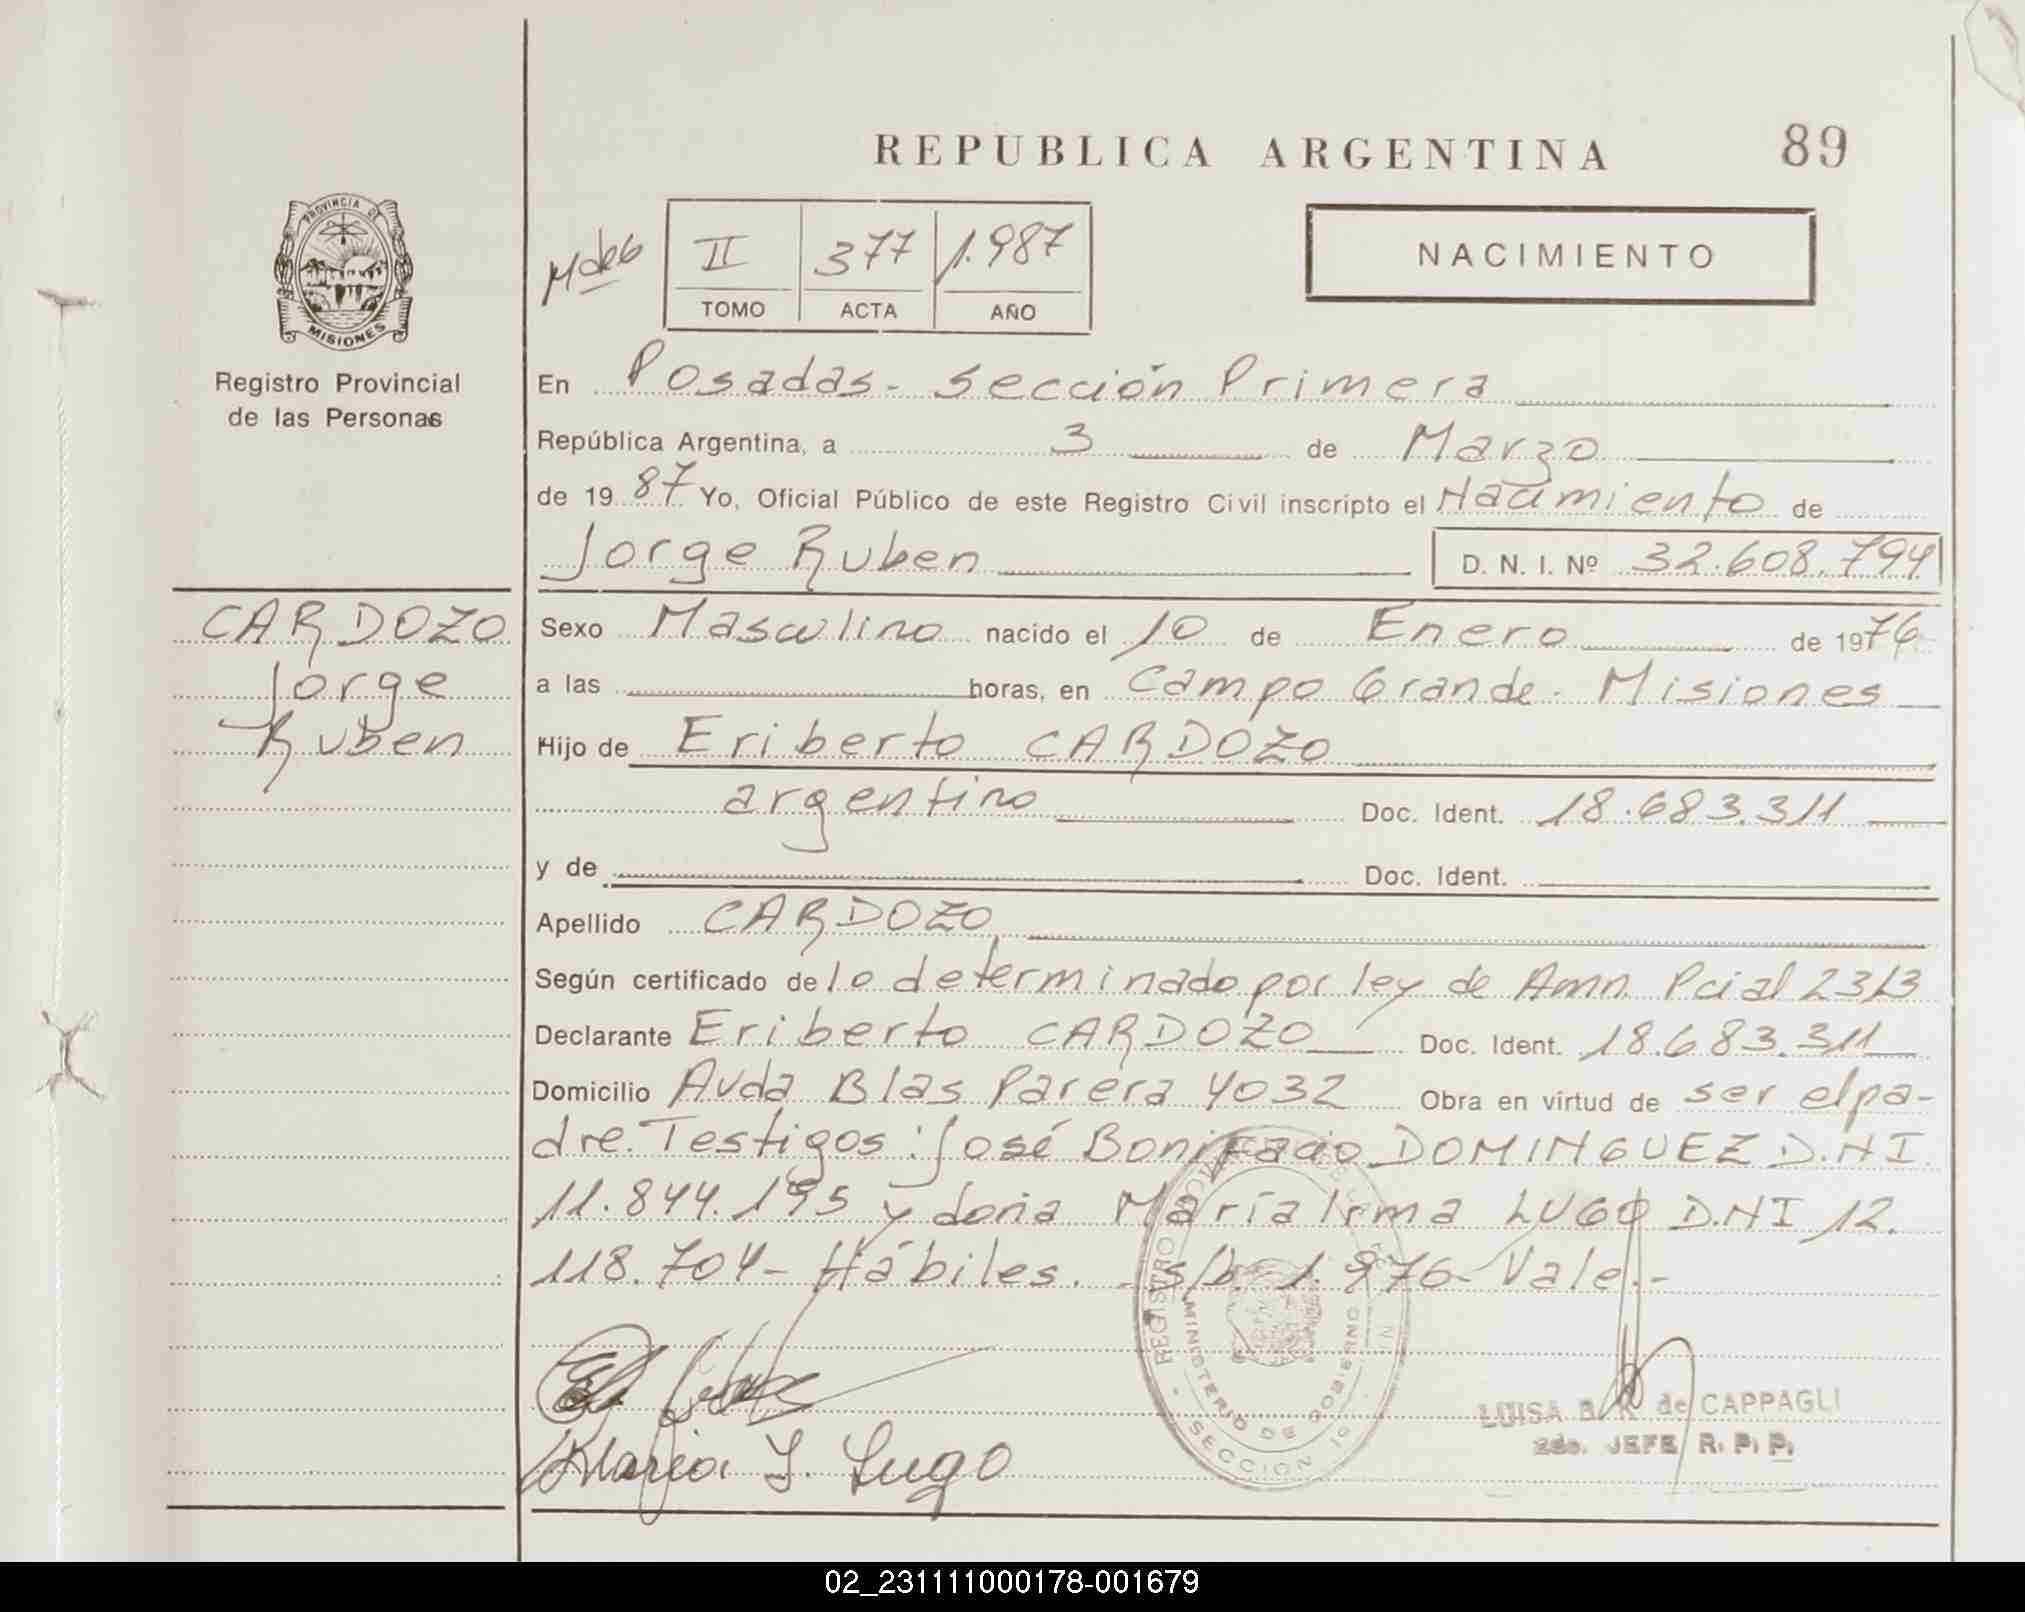 REPUBLICA ARGENTINA
89
PROVINCIA DE
MISIONES
Registro Provincial
de las Personas
II 377 1.987
TOMO ACTA AÑO
NACIMIENTO
En Posadas - Sección Primera
República Argentina, a 3 de Marzo
de 19 87 Yo, Oficial Público de este Registro Civil inscripto el Nacimiento de
Jorge Ruben D. N. I. Nº 32.608.794
CARDOZO
Jorge
Ruben
Sexo Masculino nacido el 10 de Enero de 1976
a las horas, en Campo Grande - Misiones
Hijo de Eriberto CARDOZO
argentino Doc. Ident. 18.683.311
y de Doc. Ident.
Apellido CARDOZO
Según certificado de lo determinado por ley de Amn. Pcial 2313
Declarante Eriberto CARDOZO Doc. Ident. 18.683.311
Domicilio Avda Blas Parera 4032 Obra en virtud de ser el pa-
dre. Testigos: José Bonifacio DOMINGUEZ D.N.I.
11.844.195 y doña María Irma LUGO D.NI 12.
118.704 - Hábiles. - s/b - 1.976 - Vale. -
María I. Lugo
MINISTERIO DE GOBIERNO
SECCION 1º
LUISA B. R. de CAPPAGLI
2do. JEFE R. P. P.
02_231111000178-001679